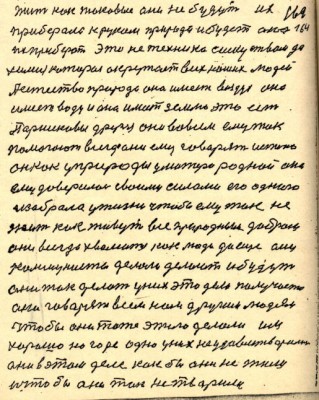 жит как таковые они не будут их 169
приберала к рукам природа и будет она 164
их приберот это не техника самиотвали до
химии которая окружает всех наших людей
Естество природа она имеет воздух она
имеет воду и она имеит землю это ест
Паршиковы други они вовсем ему так
помогают всегда они ему говарят истино
он как у природы у матери родной она
ему доверилас своими силами его одного
изобрала у жизни чтобы ему так не
жит как живут все природные
они всегда хвалит как люди да еще они
коммунисты делали делают и будут
они так делат у них это дело получается
они говарят всем нам другим людям
чтобы они тоже этого делали им
харашо но горе одно у них неудовлетворител
они в этом деле как бы они не жили
и что бы они так не тварили